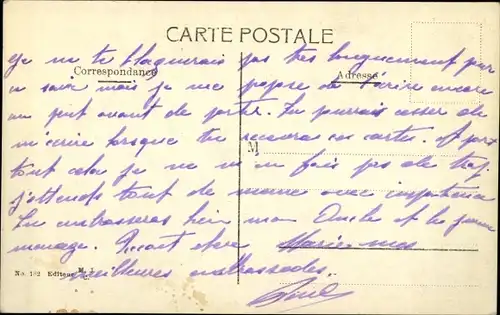 CARTE POSTALE
Je ne te blaguerais pas très longuement par
Correspondance
Adresse
ce soir mais je me propose de t'écrire encore
un peu avant de partir. Tu pourrais cesser de
m'écrire lorsque tu recevras ces cartes. A part
M
tout cela je ne m'en fais pas de trop
j'attends tout de meme avec impatience
Tu embrasseras bien mon Oncle et le jeune
menage. Recoit chere Marie mes
meilleures embrassades.
No. 182 Editeur